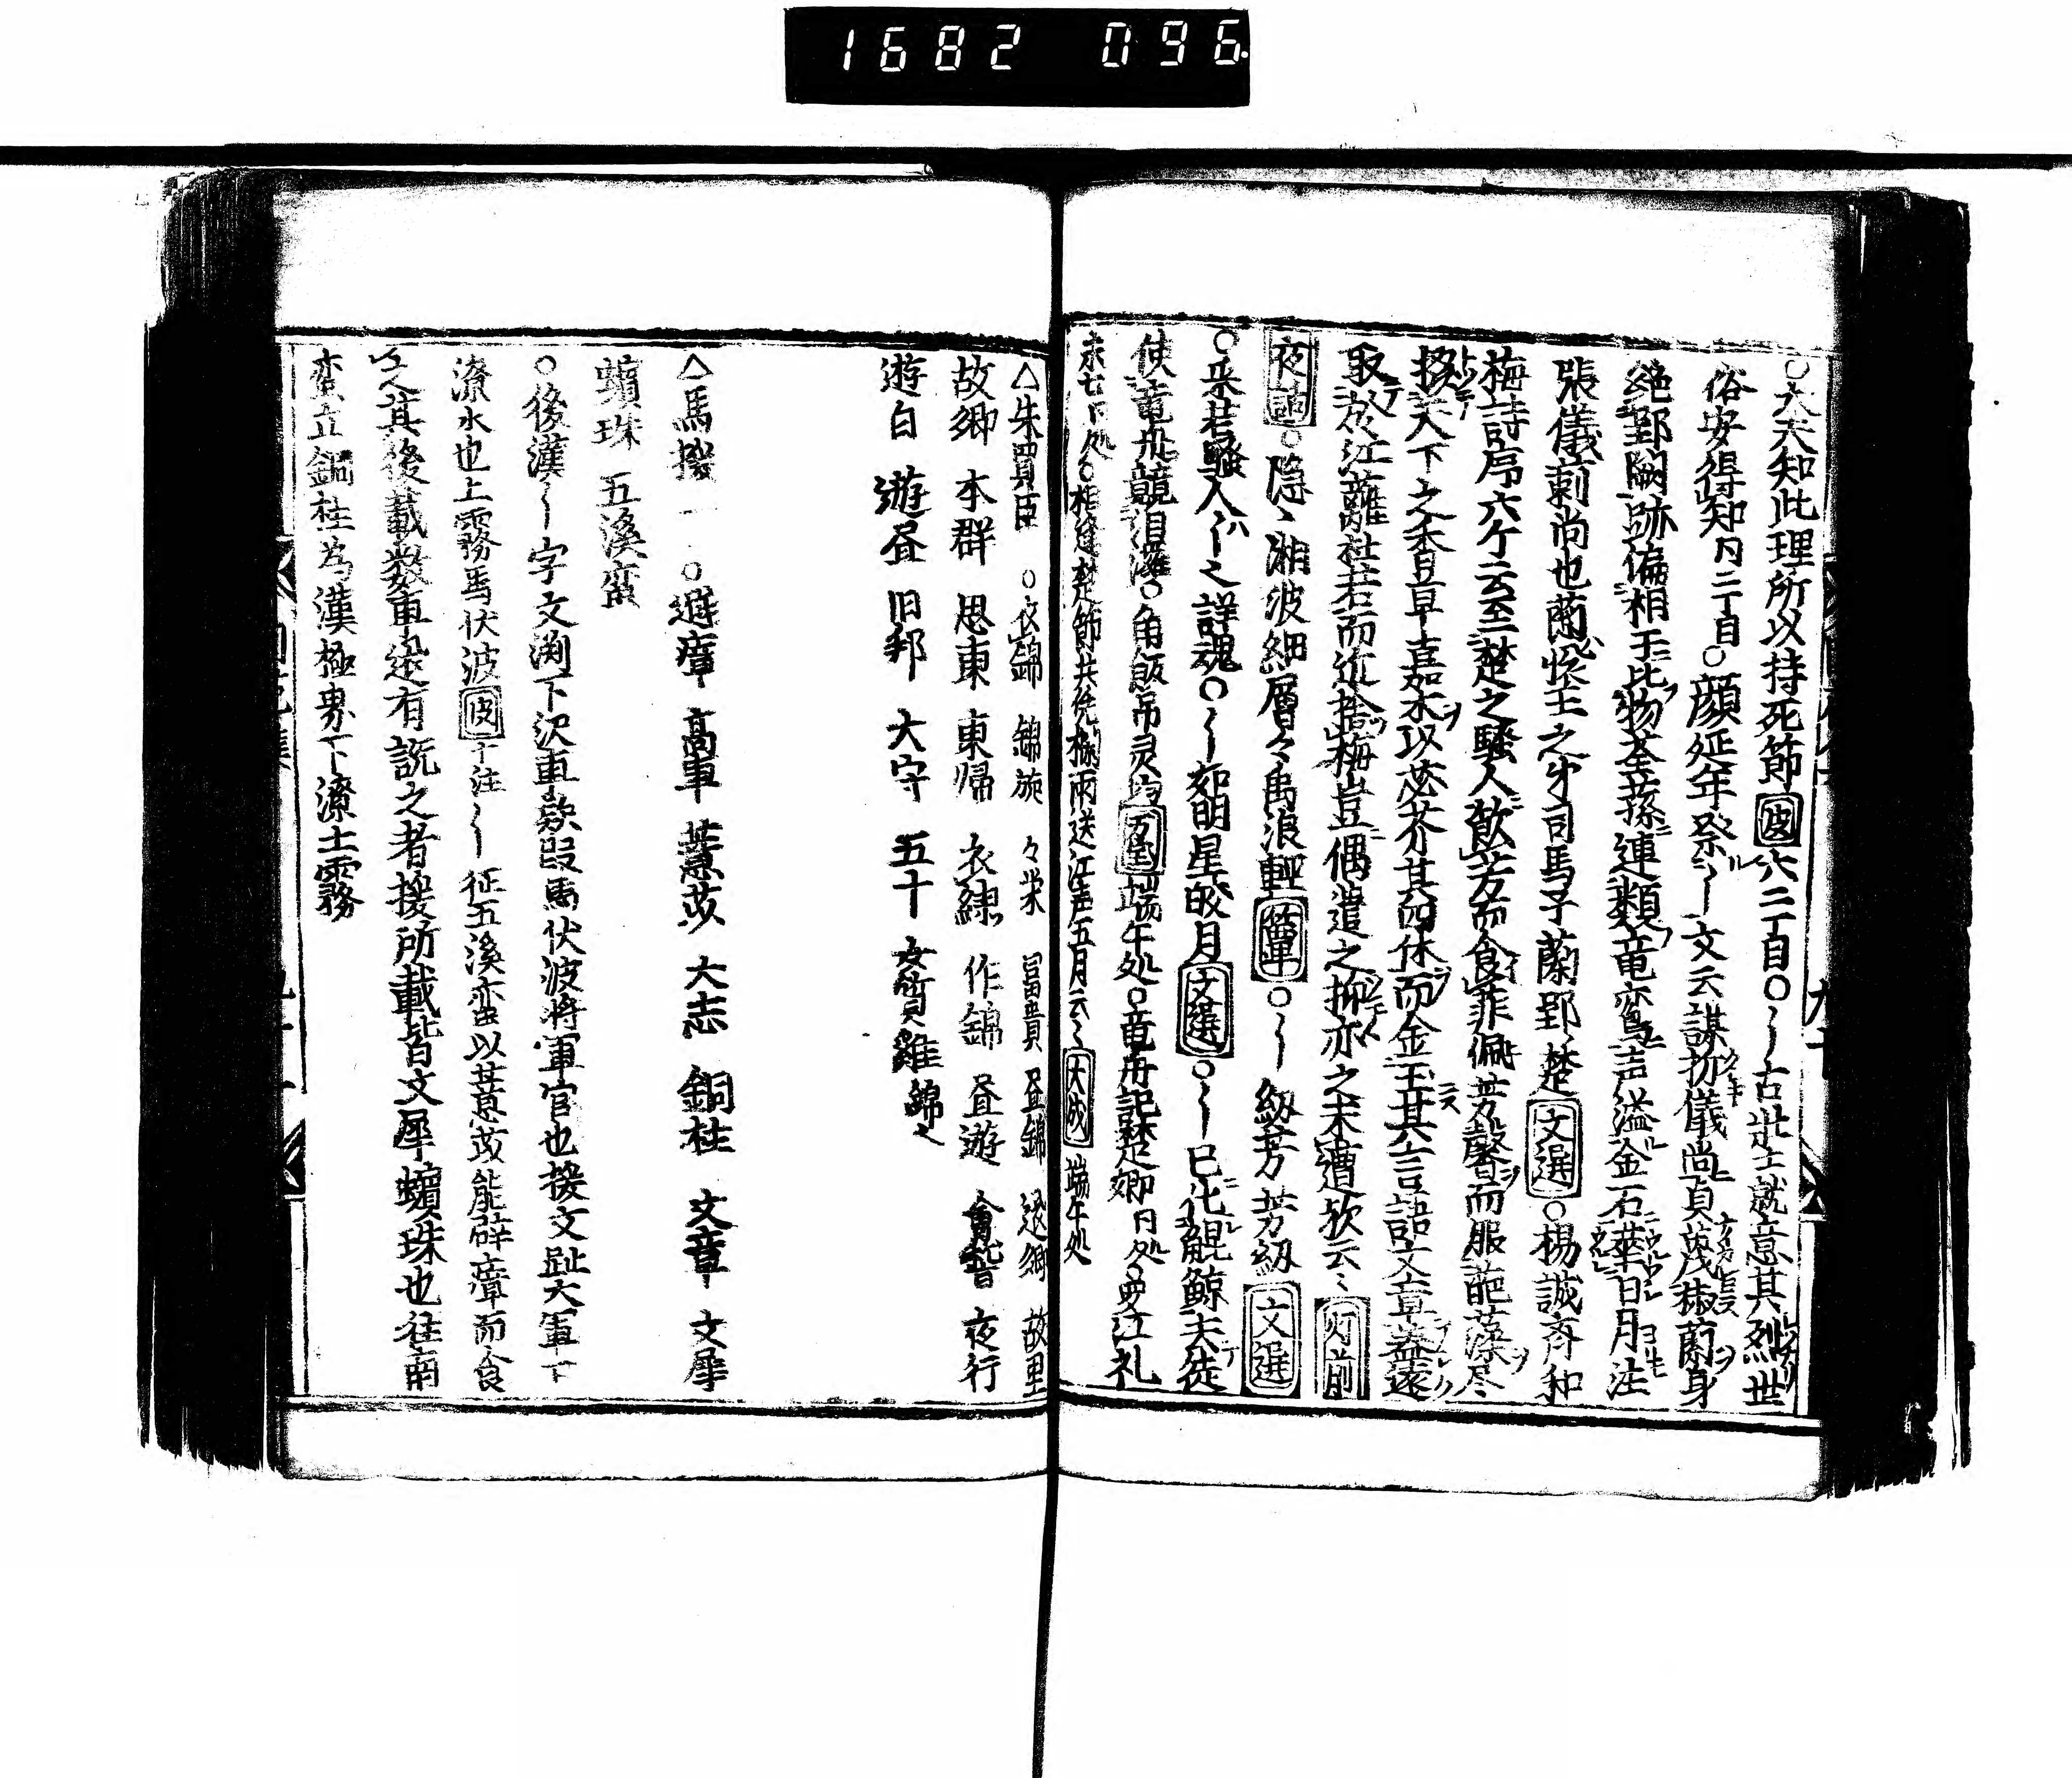 1682 096
○大夫知此理所以持死節 坡 六二丁目○〜古壯士就意其烈世
俗安得知 冃二丁目○顔延年祭〜文云謀折儀尚貞蔑椒蘭身
絶郢闕跡偏相干比物荃蓀連類竜鸞声溢金石華日月注
張儀靳尚也蘭懷王之才司馬子蘭郢楚 文選 ○楊誠斉和
梅詩序六ケ云至楚之騷人飲芳而食菲佩芳馨而服葩藻尽
掇天下之香草嘉木以苾芥其四体而金玉其言語文章蓋遠
取於江蘺杜若而近捨梅豈偶遺之抑亦之未遭欤云〻 灯前
夜話 ○隱〻湘波細層々禹浪輕 ○〜紉芳 芳紉 文選
○采若騷人〜之詳魂○〜如明星皎月 文選 ○〜已化觀鯨夫徒
使竜舟競汨羅○角飯吊灵均 端午処○竜舟記楚鄉 冃処 江礼
冃処○相逢楚節共 雨送江声五月云〻 大成 端午処
△朱買臣 ○衣錦 錦旋 々栄 冨貴 昼錦 還鄉 故里
故鄉 本群 思東 東帰 衣練 作錦 昼遊 會稽 夜行
遊白 遊昼 旧邦 大守 五十 女質 錦之
△馬援 一 ○避瘴 高車 薏苡 大志 銅柱 文章 文犀
蠙珠 五溪蛮
○後漢〜字文渕下沢車欵段馬伏波将軍官也援文趾大軍下
潦水也上霧馬伏波 坡 十注〜征五溪蛮以薏苡能辟瘴而食
之其後載数車 還有謊之者援所載皆文犀蠙珠也往南
蛮立銅柱為漢極界下潦上霧